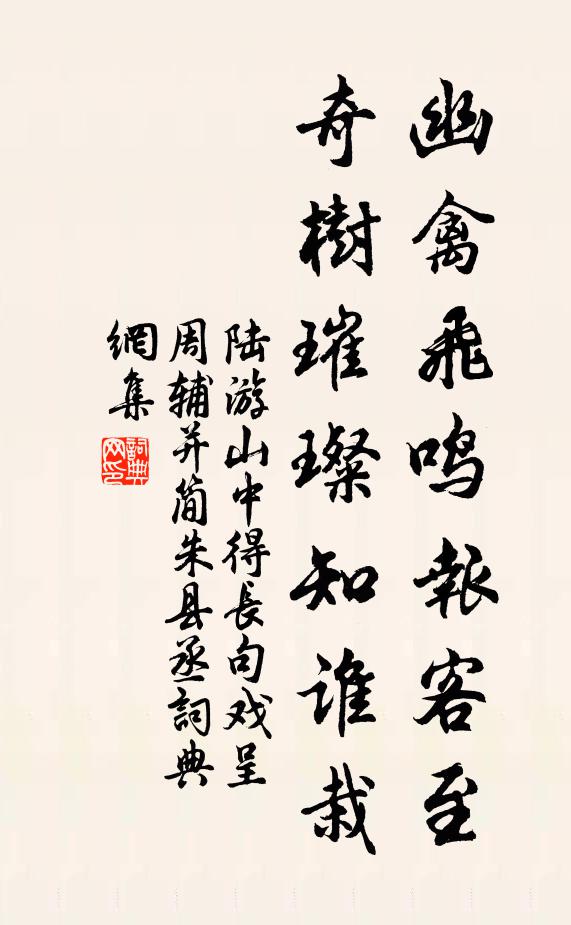 幽禽飛鸣報客至
奇樹璀璨知谁栽
陆游山中得長句戏呈
周辅并简朱县丞詞典
網集
詞典网印